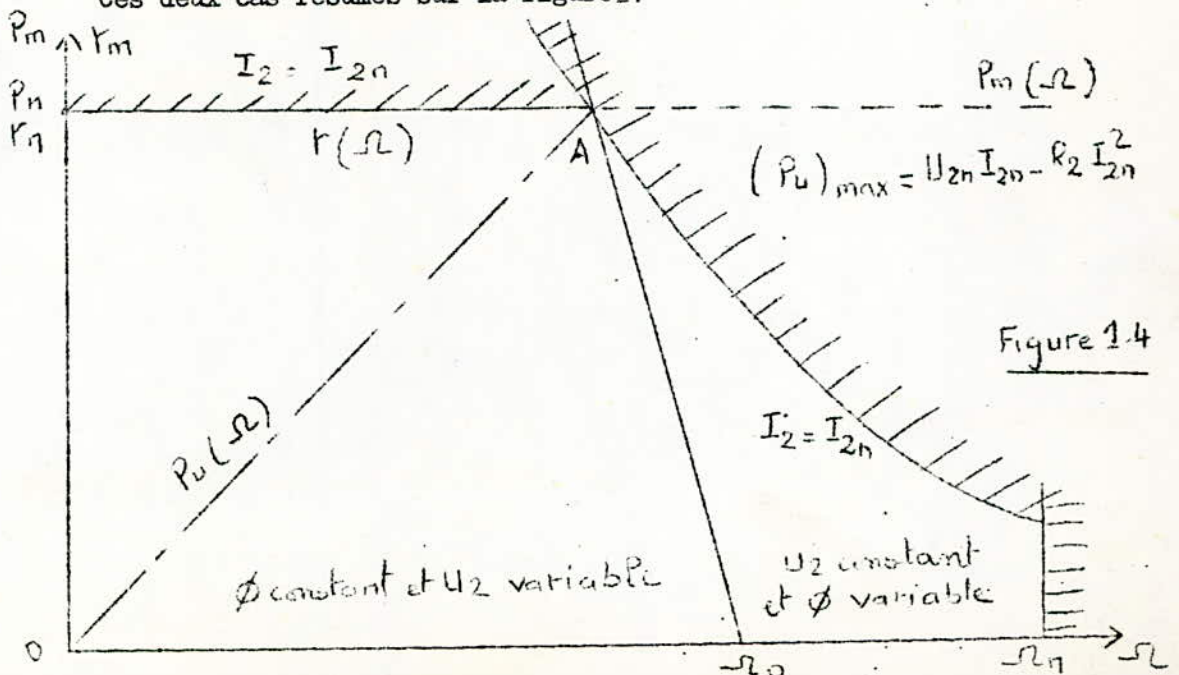 ces deux cas résumés sur la figure1.
Pm Γm
I2 = I2n
Pn
Γn
Γ(Ω)
A
Pm(Ω)
(Pu)max = U2n I2n - R2 I2n²
Figure 1.4
Pu(Ω)
I2 = I2n
ϕ constant et U2 variable
U2 constant
et ϕ variable
0
Ωn
Ω